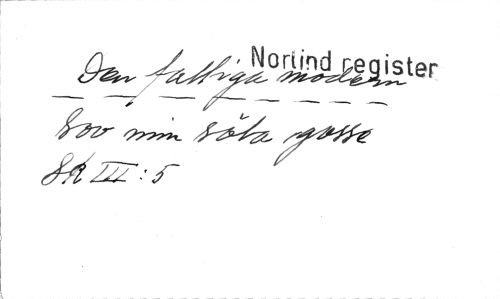 Norlind register
Den fattiga modern
Sov min söta gosse
SK III : 5